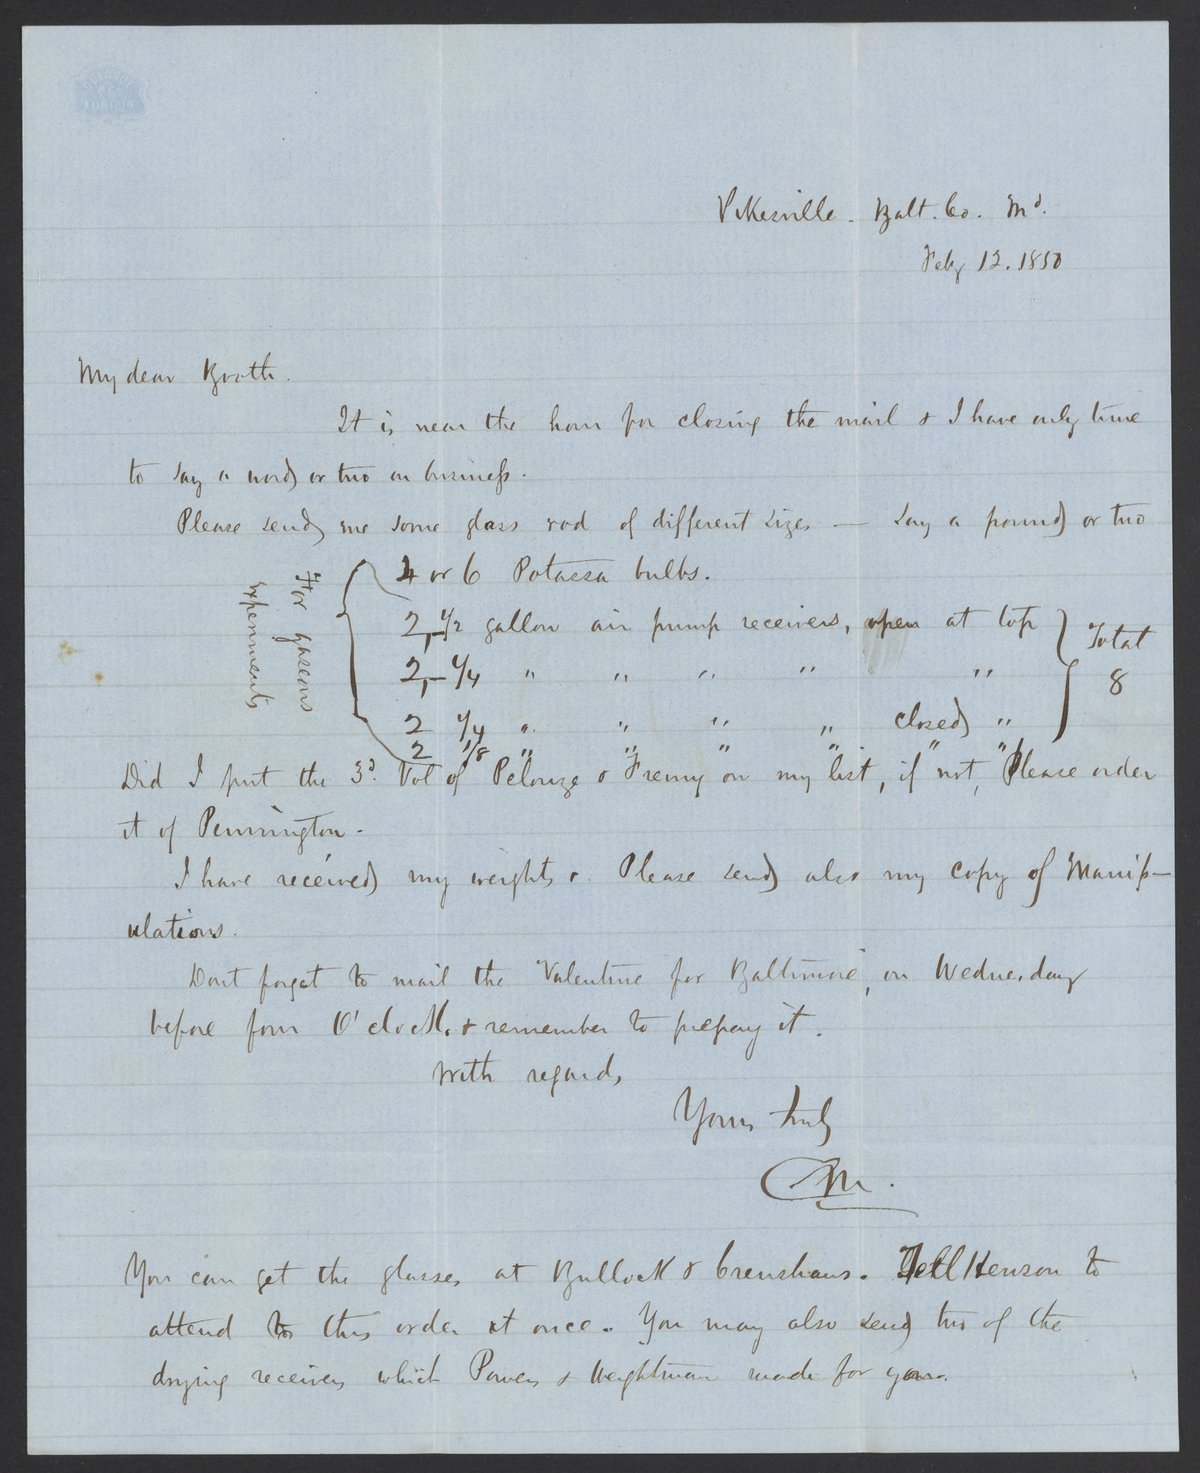 LONDON
Pikesville. Balt. Co. Md.
Feby 12. 1850
My dear Booth.
It is near the hour for closing the mail & I have only time
to say a word or two on business.
Please send me some glass rod of different sizes — say a pound or two
For gaseous
experiments
4 or 6 Potassa bulbs.
2, 1/2 gallon air pump receivers, open at top
2, - 1/4 " " " " "
2 1/4 " " " " closed "
2 1/8 " " " " " "
Total
8
Did I put the 3d. Vol of Pelouze & Fremy on my list, if not, Please order
it of Pennington.
I have received my weights &. Please send also my copy of Manip-
ulations.
Dont forget to mail the Valentine for Baltimore, on Wednesday
before four O'clock, & remember to prepay it.
With regards
Yours truly
CM.
You can get the glasses at Bullock & Crenshaws. Tell Henson to
attend to this order at once. You may also send two of the
drying receivers which Powers & Weightman made for you.